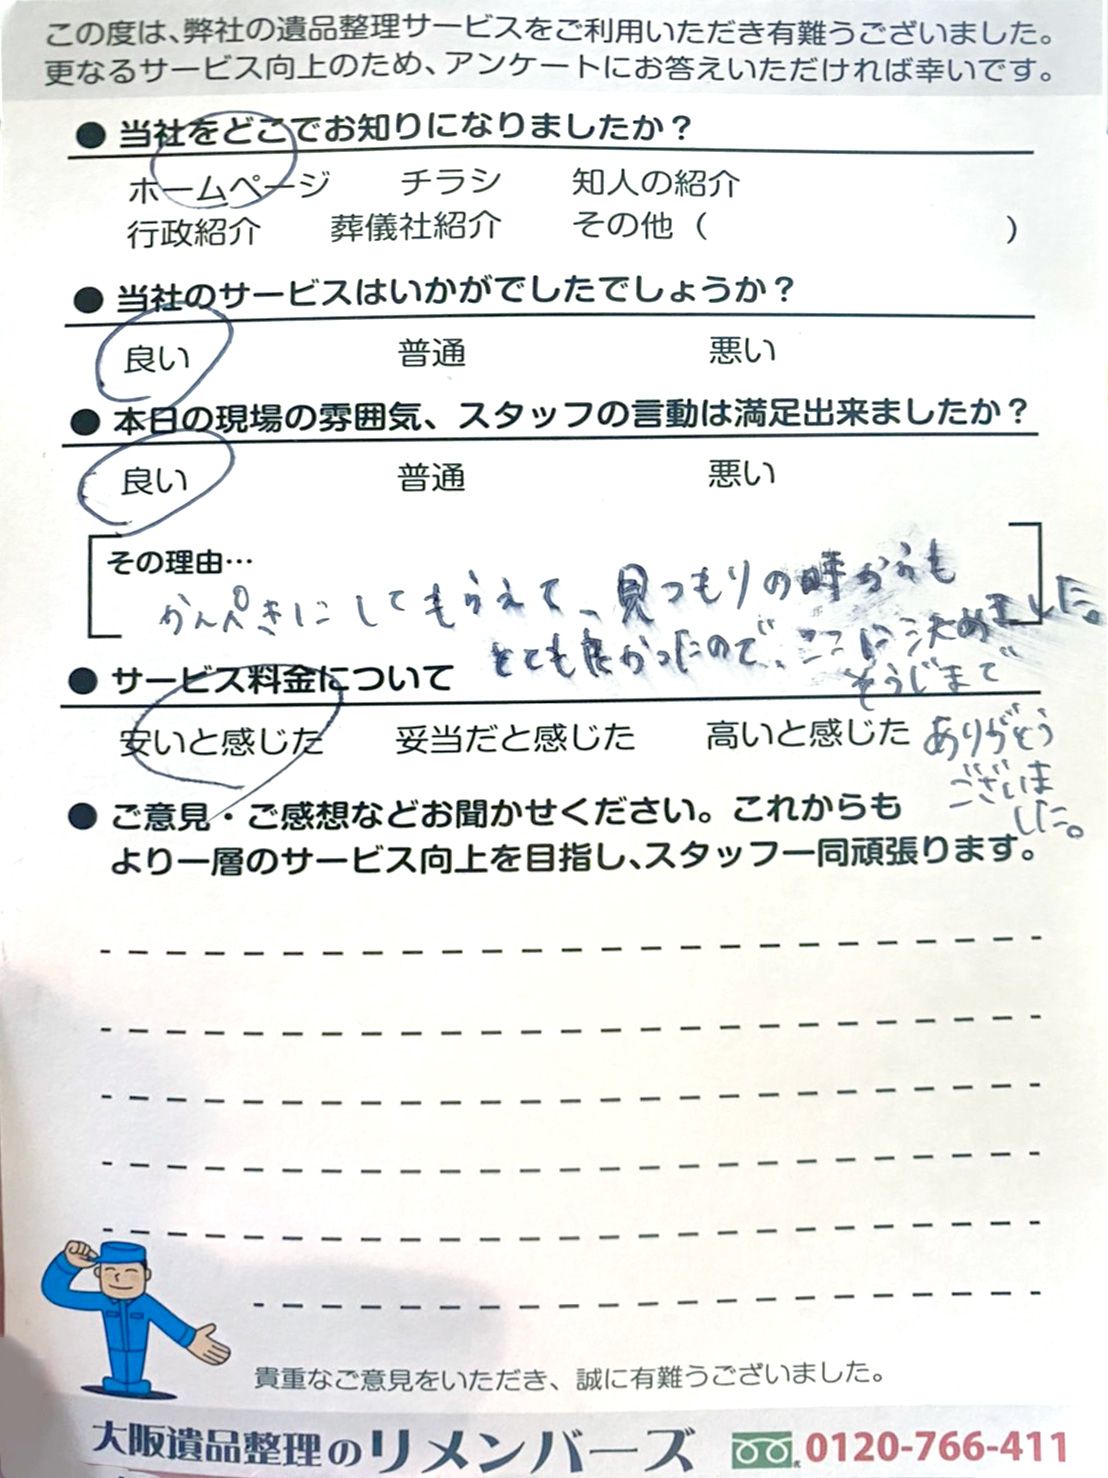 この度は、弊社の遺品整理サービスをご利用いただき有難うございました。
更なるサービス向上のため、アンケートにお答えいただければ幸いです。
● 当社をどこでお知りになりましたか？
ホームページ チラシ 知人の紹介
行政紹介 葬儀社紹介 その他（ ）
● 当社のサービスはいかがでしたでしょうか？
良い 普通 悪い
● 本日の現場の雰囲気、スタッフの言動は満足出来ましたか？
良い 普通 悪い
その理由…
かんぺきにしてもらえて、見つもりの時からも
とても良かったので、ここに決めました。
そうじまで
ありがとう
ございま
した。
● サービス料金について
安いと感じた 妥当だと感じた 高いと感じた
● ご意見・ご感想などお聞かせください。これからも
より一層のサービス向上を目指し、スタッフ一同頑張ります。
貴重なご意見をいただき、誠に有難うございました。
大阪遺品整理のリメンバーズ 0120-766-411